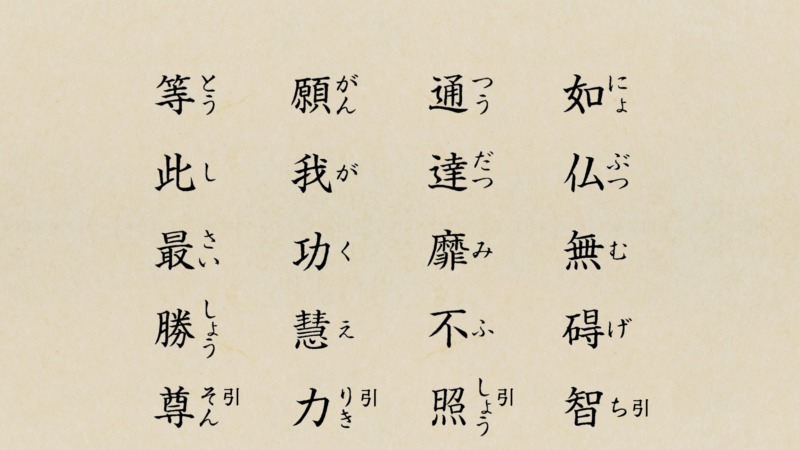 如にょ仏ぶつ無む碍げ智ち引
通つう達だつ靡み不ふ照しょう引
願がん我が功く慧え力りき引
等とう此し最さい勝しょう尊そん引